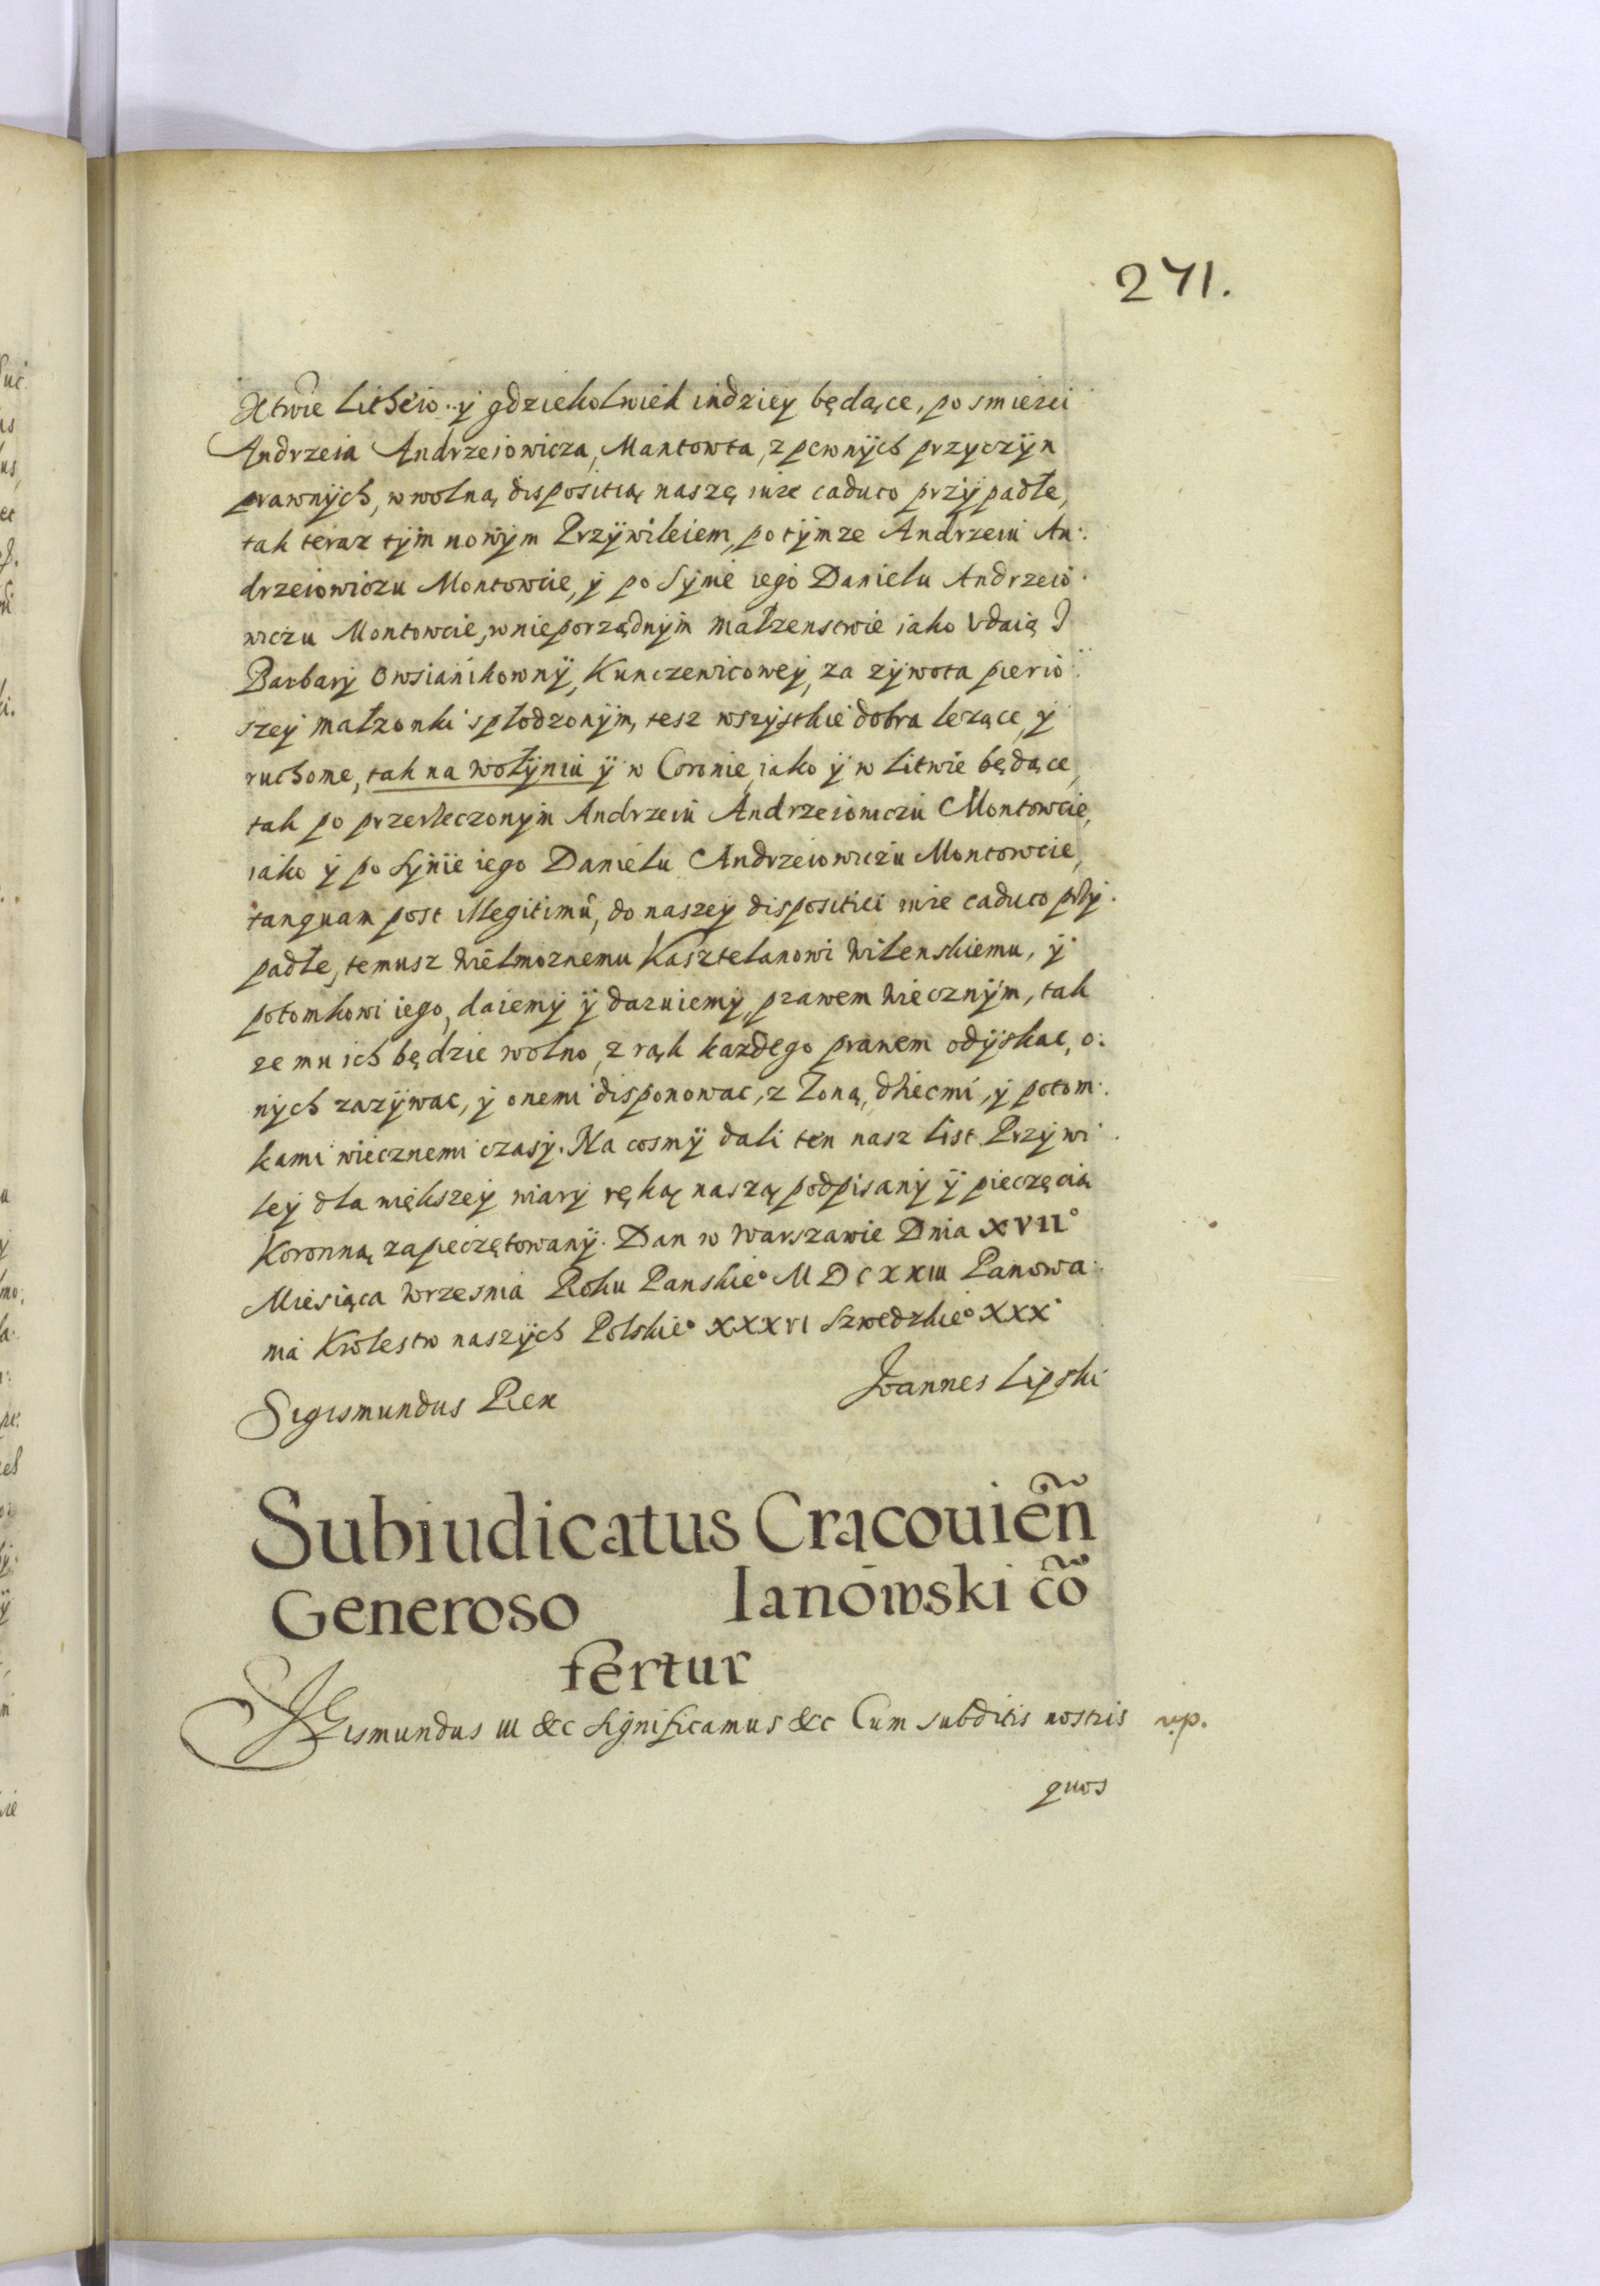 271.
Xtwie Lithew. y gdziekolwiek indziey będące, po smierci
Andrzeia Andrzeiowicza, Mantowta, z pewnÿch przyczÿn
prawnÿch, w wolną dispositią naszę iure caduco przÿpadłe,
tak teraz tÿm nowÿm Przÿwileiem, po tÿmze Andrzeiu An:
drzeiowiczu Montowcie, ÿ po Sÿnie iego Danielu Andrzeio
wiczu Montowcie, w nieporządnÿm małzenstwie iako Vdaią Z
Barbarÿ Owsianikownÿ, Kunczewicoweÿ, za zÿwota pierw:
szeÿ małzonki spłodzonÿm, tesz wszÿstkie dobra lezące, ÿ
ruchome, tak na wołÿniu ÿ w Coronie, iako ÿ w Litwie będące,
tak po przerzeczonÿm Andrzeiu Andrzeiowiczu Montowcie,
iako ÿ po Sÿnie iego Danielu Andrzeiowiczu Montowcie,
tanquam post Illegitimū, do naszeÿ dispositiei iure caduco przÿ
padłe, temusz Wielmoznemu Kasztelanowi Wilenskiemu, ÿ
potomkowi iego, daiemÿ ÿ daruiemÿ, prawem wiecznÿm, tak
ze mu ich będzie wolno, z rąk kazdego prawem odÿskac, o:
nÿch zazÿwac, ÿ onemi disponowac, z Zoną, dziecmi, ÿ potom
kami wiecznemi czasÿ. Na cosmÿ dali ten nasz List Przÿwi
leÿ dla większeÿ wiarÿ ręką naszą podpisanÿ ÿ pieczęcią
Koronną zapieczętowanÿ. Dan w Warszawie Dnia XVII°
Miesiąca Wrzesnia Roku Panskie° MDCXXIII Panowa
nia Krolestw naszÿch Polskie° XXXVI Szwedzkie° XXX
Sigismundus Rex Joannes Lipski
Subiudicatus Cracouien̄
Generoso Ianowski cō
fertur
Sigismundus III &c Significamus &c Cum subditis nostris
quos